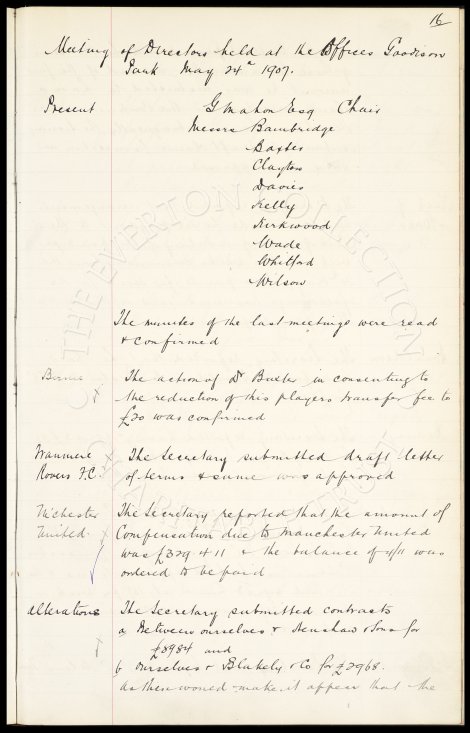 16
Meeting of Directors held at the Offices Goodison
Park May 24th 1907.
Present G Mahon Esq Chair
Messrs Bainbridge
Baxter
Clayton
Davies
Kelly
Kirkwood
Wade
Whitford
Wilson
The minutes of the last meetings were read
& confirmed
Birnie x The action of Dr Baxter in consenting to
the reduction of this players transfer fee to
£20 was confirmed
Tranmere x The Secretary submitted draft letter
Rovers F.C. of terms & same was approved
M'chester The Secretary reported that the amount of
United Compensation due to Manchester United
was £329 4 11 & the balance of 4/11 was
ordered to be paid
Alterations The Secretary submitted contracts
a Between ourselves & Henshaw & Sons for
£8984 and
b ourselves & Blakely & Co for £2968.
as these would make it appear that the
© THE EVERTON COLLECTION